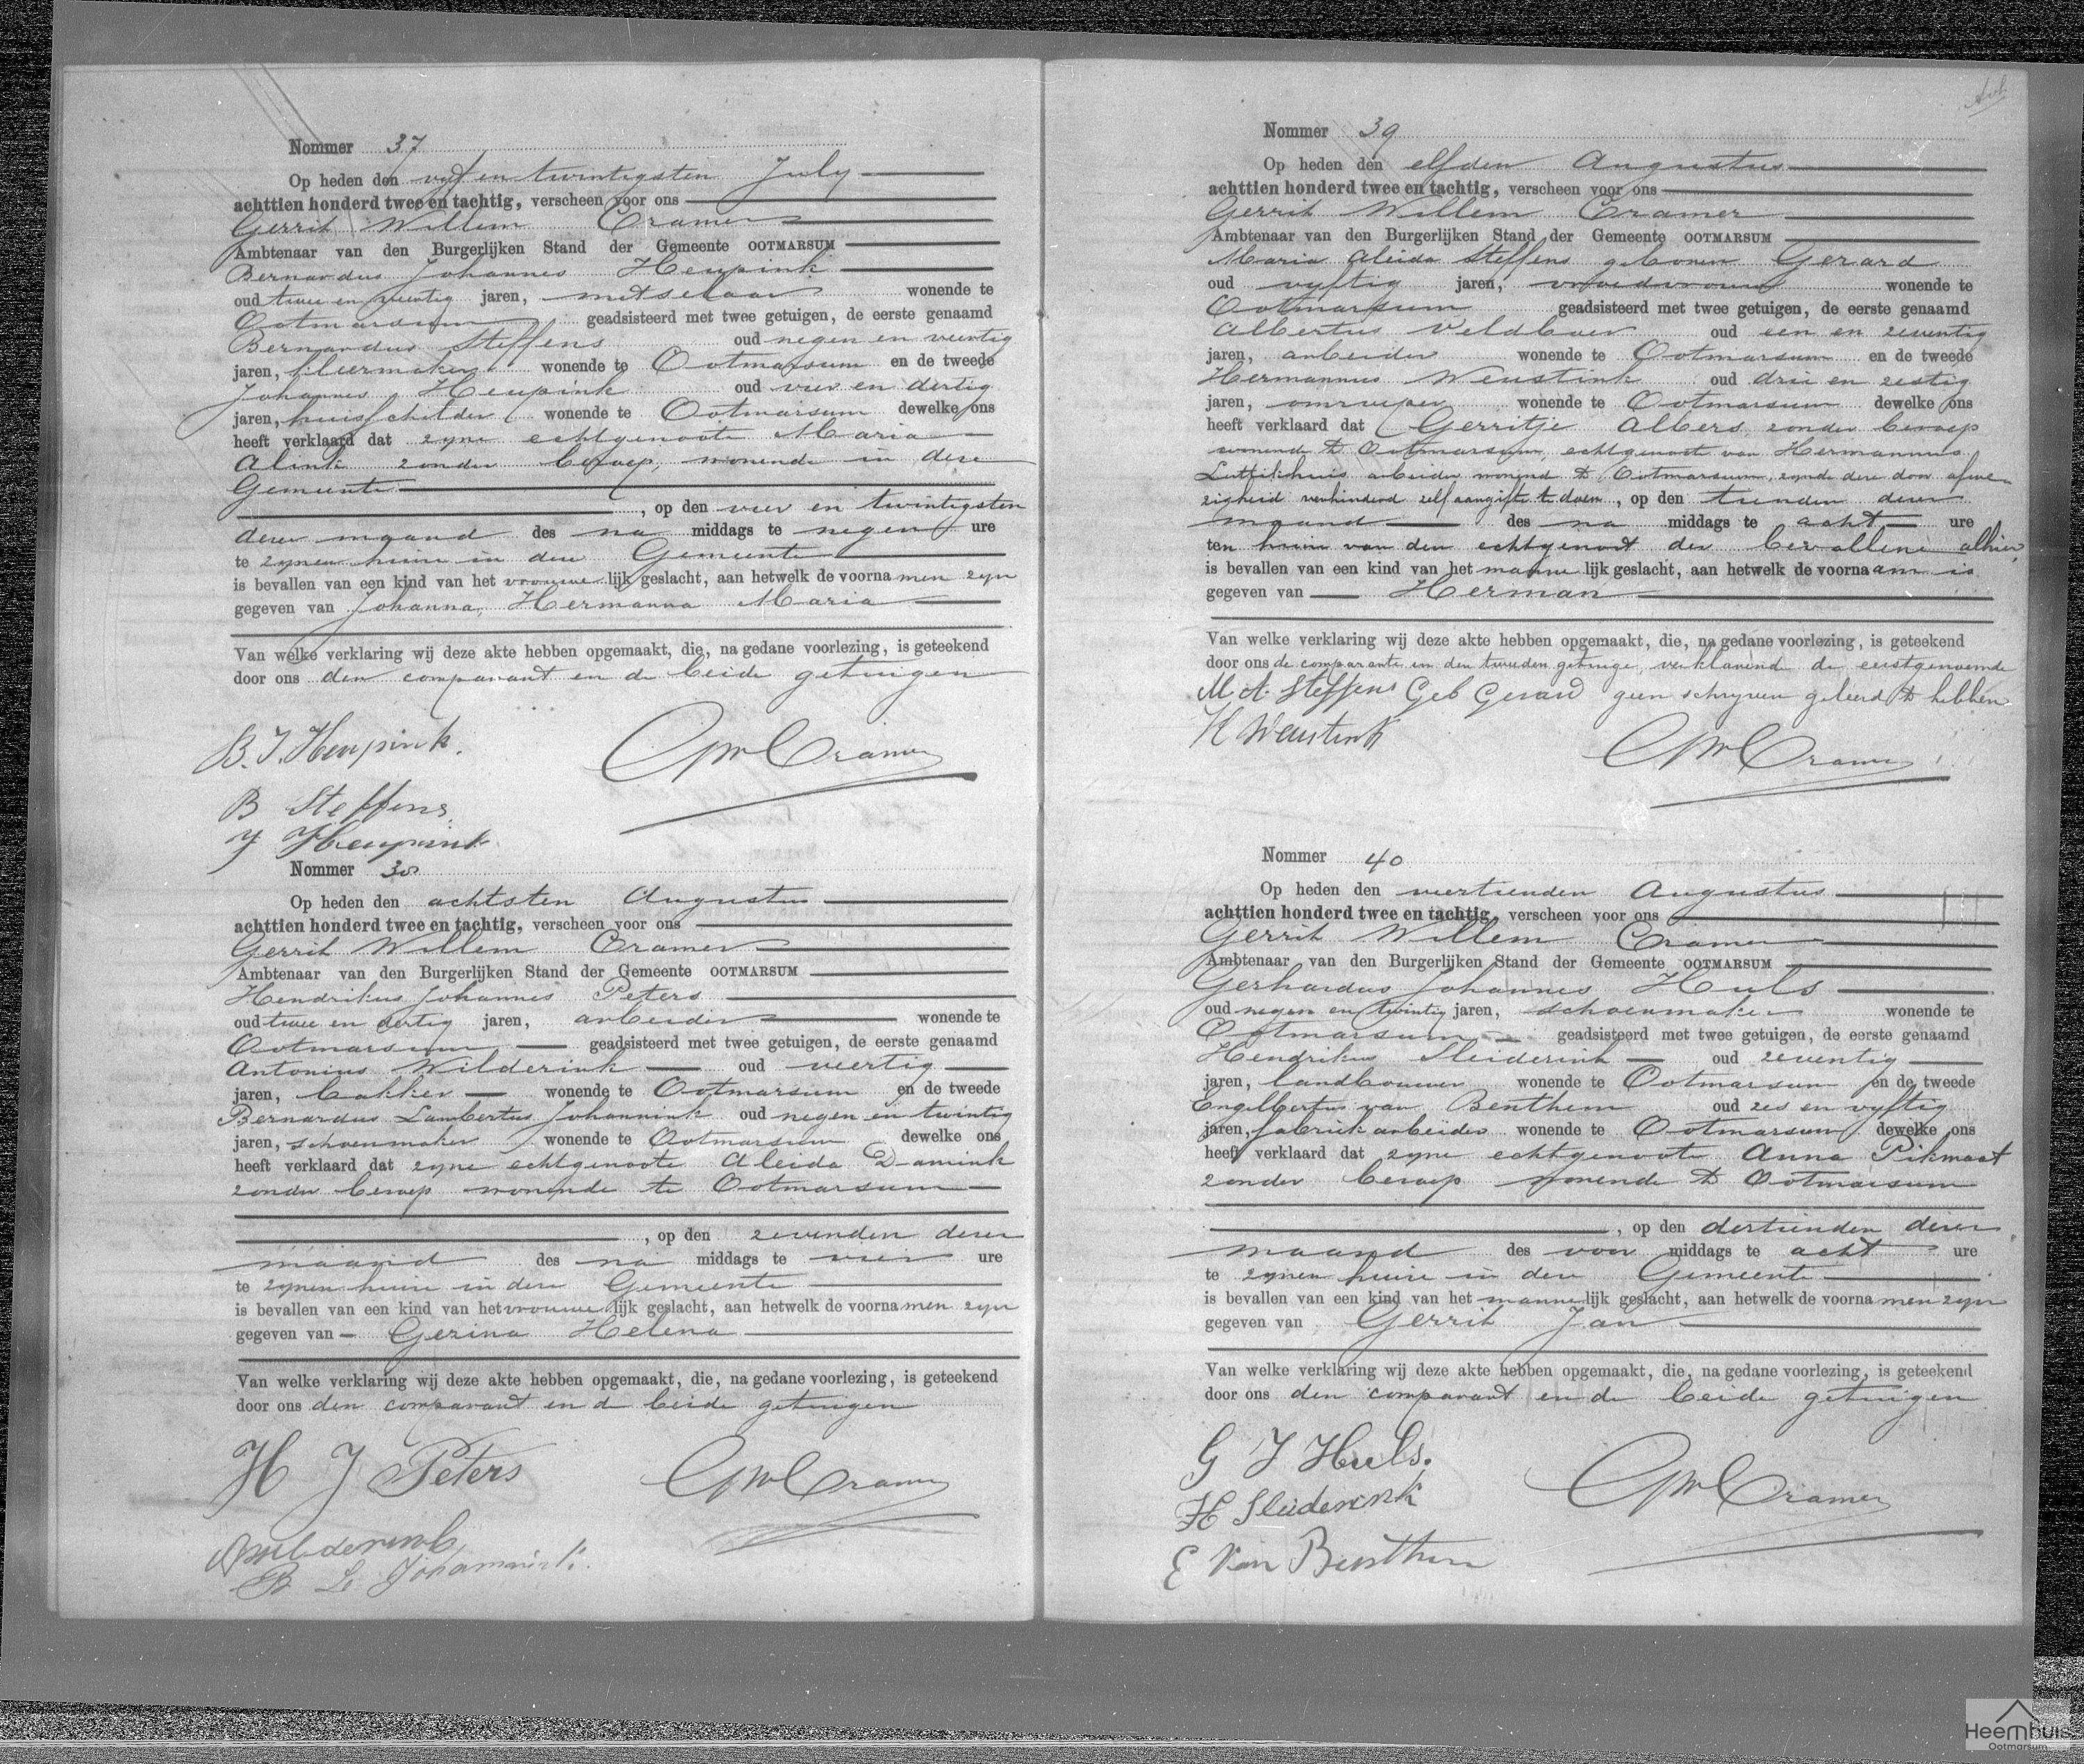 Nommer 37
Op heden den vijf en twintigsten July
achttien honderd twee en tachtig, verscheen voor ons
Gerrit Willem Cramer
Ambtenaar van den Burgerlijken Stand der Gemeente OOTMARSUM
Bernardus Johannes Heupink
oud twee en veertig jaren, metselaar wonende te
Ootmarsum geadsisteerd met twee getuigen, de eerste genaamd
Bernardus Steffens oud negen en veertig
jaren, kleermaker wonende te Ootmarsum en de tweede
Johannes Heupink oud vier en dertig
jaren, huisschilder wonende te Ootmarsum dewelke ons
heeft verklaard dat zyne echtgenoote Maria
Alink zonder beroep, wonende in deze
Gemeente
, op den vier en twintigsten
dezer maand des na middags te negen ure
te zynen huize in deze Gemeente
is bevallen van een kind van het vrouwelijk geslacht, aan hetwelk de voornamen zyn
gegeven van Johanna, Hermanna Maria
Van welke verklaring wij deze akte hebben opgemaakt, die, na gedane voorlezing, is geteekend
door ons den comparant en de beide getuigen
B. J. Heupink. GWCramer
B Steffens
J Heupink
Nommer 38
Op heden den achtsten Augustus
achttien honderd twee en tachtig, verscheen voor ons
Gerrit Willem Cramer
Ambtenaar van den Burgerlijken Stand der Gemeente OOTMARSUM
Hendrikus Johannes Peters
oud twee en dertig jaren, arbeider wonende te
Ootmarsum geadsisteerd met twee getuigen, de eerste genaamd
Antonius Wilderink oud veertig
jaren, bakker wonende te Ootmarsum en de tweede
Bernardus Lambertus Johannink oud negen en twintig
jaren, schoenmaker wonende te Ootmarsum dewelke ons
heeft verklaard dat zyne echtgenoote Aleida Damink
zonder beroep wonende te Ootmarsum
, op den zevenden dezer
maand des na middags te vier ure
te zynen huize in deze Gemeente
is bevallen van een kind van het vrouwelijk geslacht, aan hetwelk de voornamen zyn
gegeven van Gezina Helena
Van welke verklaring wij deze akte hebben opgemaakt, die, na gedane voorlezing, is geteekend
door ons den comparant en de beide getuigen
H J Peters GWCramer
AWilderink
B L Johannink.
Nommer 39
Op heden den elfden Augustus
achttien honderd twee en tachtig, verscheen voor ons
Gerrit Willem Cramer
Ambtenaar van den Burgerlijken Stand der Gemeente OOTMARSUM
Maria Aleida Steffens geboren Gerard
oud vyftig jaren, vroedvrouw wonende te
Ootmarsum geadsisteerd met twee getuigen, de eerste genaamd
Albertus Veldboer oud een en zeventig
jaren, arbeider wonende te Ootmarsum en de tweede
Hermannus Weustink oud drie en zestig
jaren, omroeper wonende te Ootmarsum dewelke ons
heeft verklaard dat Gerritje Albers zonder beroep
wonende te Ootmarsum, echtgenoot van Hermannus
Luttikhuis arbeider wonend te Ootmarsum, zynde deze door afwe-
zigheid verhinderd zelf aangifte te doen, op den tienden dezer
maand des na middags te acht ure
ten huize van den echtgenoot der bevallene alhier
is bevallen van een kind van het mannelijk geslacht, aan hetwelk de voornaam is
gegeven van Herman
Van welke verklaring wij deze akte hebben opgemaakt, die, na gedane voorlezing, is geteekend
door ons de comparante en den tweeden getuige, verklarend de eerstgenoemde
M. A. Steffens Geb Gerard geen schryven geleerd te hebben
H Weustink GWCramer
Nommer 40
Op heden den veertienden Augustus
achttien honderd twee en tachtig, verscheen voor ons
Gerrit Willem Cramer
Ambtenaar van den Burgerlijken Stand der Gemeente OOTMARSUM
Gerhardus Johannes Huls
oud negen en twintig jaren, schoenmaker wonende te
Ootmarsum geadsisteerd met twee getuigen, de eerste genaamd
Hendrikus Sleiderink oud zeventig
jaren, landbouwer wonende te Ootmarsum en de tweede
Engelbertus van Benthem oud zes en vyftig
jaren, fabriekarbeider wonende te Ootmarsum dewelke ons
heeft verklaard dat zyne echtgenoote Anna Pikmaat
zonder beroep wonende te Ootmarsum
, op den dertienden dezer
maand des voor middags te acht ure
te zynen huize in deze Gemeente
is bevallen van een kind van het mannelijk geslacht, aan hetwelk de voornamen zyn
gegeven van Gerrit Jan
Van welke verklaring wij deze akte hebben opgemaakt, die, na gedane voorlezing, is geteekend
door ons den comparant en de beide getuigen
G J Huls. GWCramer
H Sleiderink
E Van Benthem
Heemhuis
Ootmarsum